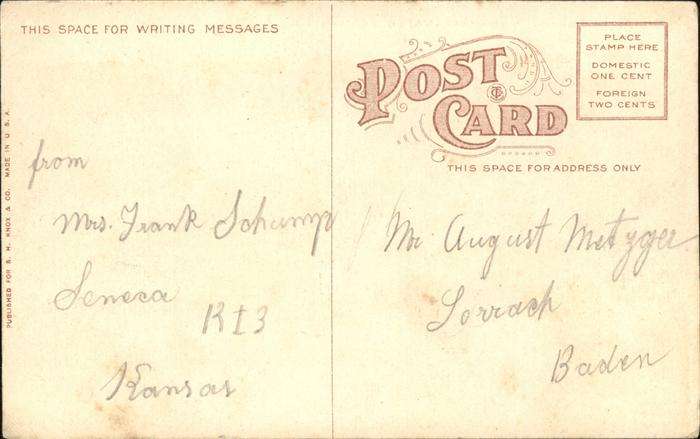 THIS SPACE FOR WRITING MESSAGES
POST
CARD
PLACE
STAMP HERE
DOMESTIC
ONE CENT
FOREIGN
TWO CENTS
THIS SPACE FOR ADDRESS ONLY
PUBLISHED FOR S. H. KNOX & CO. MADE IN U.S.A.
from
Mrs. Frank Schump
Seneca
R I 3
Kansas
Mr. August Metzger
Lorrach
Baden